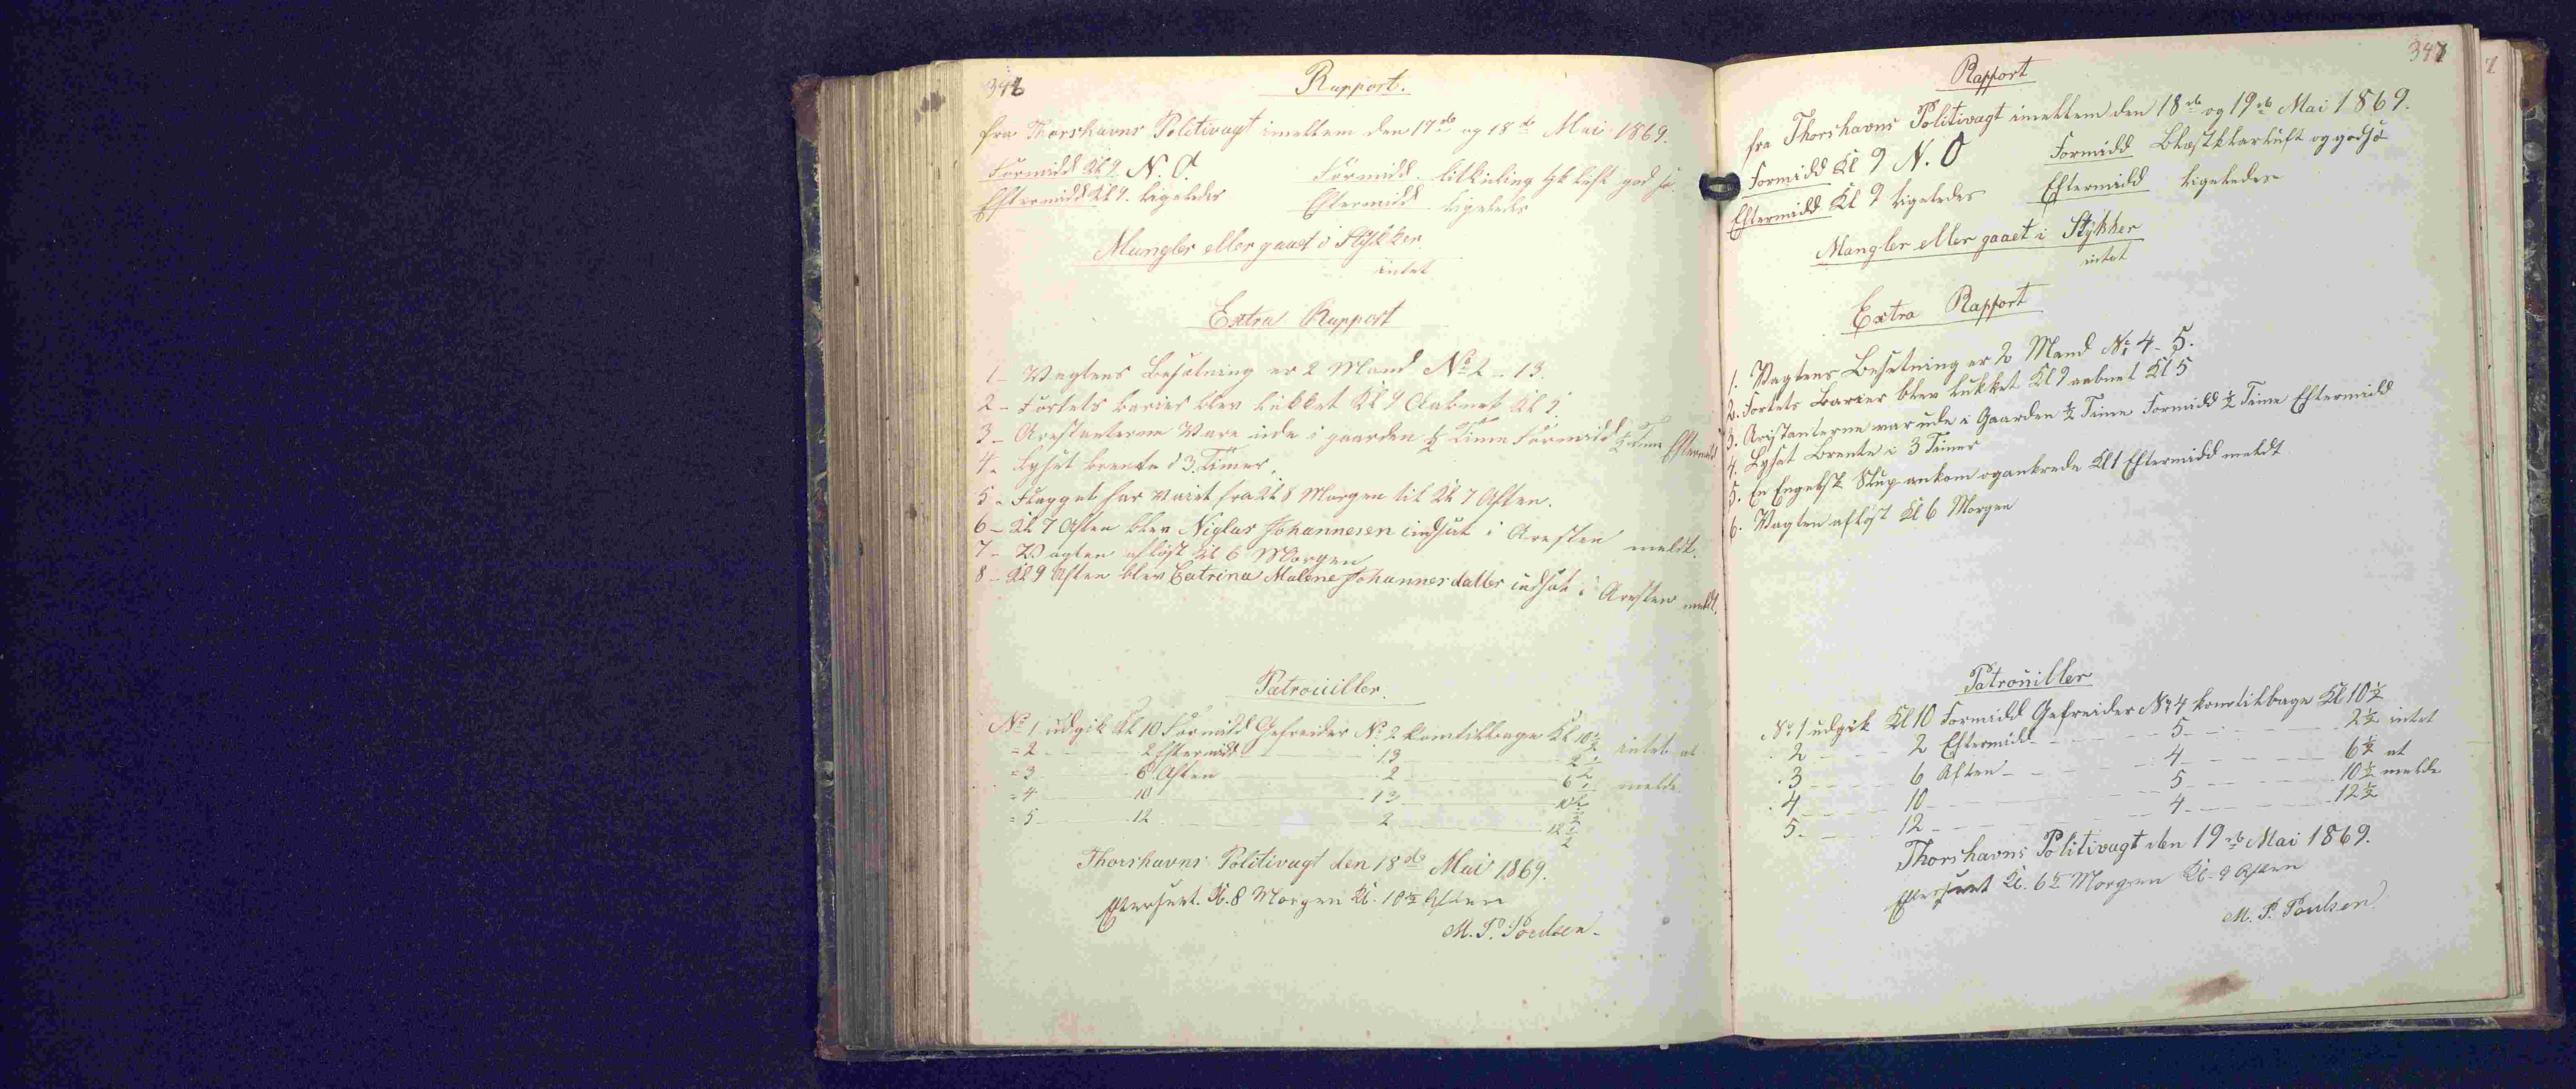 346
Rapport.
fra Thorshavns Politivagt imellem den 17de og 18de Mai 1869.
Formidd Kl 9. N. O. Formidd. litkuling tyk luft god sø.
Eftermidd Kl 9. ligeledes Eftermidd ligeledes
Mangler eller gaaet i Stykker
intet
Extra Rapport
1 - Vagtens Besætning er 2 Mand No 2 - 13.
2 - Fortets barier blev lukket Kl 9 Aabnet Kl 5.
3 - Arestanterne Vare ude i gaarden ½ Time Formidd og ½ Time Eftermidd
4 - Lyset brente i 3 Timer.
5 - Flagget har Vaiet fra Kl 8 Morgen til Kl 7 Aften.
6 - Kl 7 Aften blev Niglas Johannesen indsat i Aresten meldt.
7 - Vagten afløst Kl 6 Morgen
8 - Kl 9 Aften blev Catrina Malene Johannesdatter indsat i Aresten meldt.
Patrouiller.
No 1 udgik Kl 10 Formidd Gefreider No 2 kom tilbage Kl 10½ intet at
= 2 2 Eftermidd 13 2½
= 3 6 Aften 2 6½ melde
= 4 10 13 10½
= 5 12 2 12½
Thorshavns Politivagt den 18de Mai 1869.
Efterseet. Kl. 8 Morgen Kl. 10½ Aften
M. P. Poulsen
347
Rapport
fra Thorshavns Politivagt imellem den 18de og 19de Mai 1869.
Formidd Kl 9 N. O Formidd Blæst klar luft og god sø
Eftermidd Kl 9 ligeledes Eftermidd ligeledes
Mangler eller gaaet i Stykker
intet
Extra Rapport
1. Vagtens Besetning er 2 Mand No 4 - 5.
2. Fortets Barier blev lukket Kl 9 aabnet Kl 5
3. Aristanterne var ude i Gaarden ½ Time Formidd ½ Time Eftermidd
4. Lyset Brente i 3 Timer
5. En Engelsk Slup ankom og ankrede Kl 1 Eftermidd meldt
6. Vagten afløst Kl 6 Morgen
Patrouiller
No 1 udgik Kl 10 Formidd Gefreider No 4 kom tilbage Kl 10½
2 2 Eftermidd 5 2½ intet
3 6 Aften 4 6½ at
4 10 5 10½ melde
5 12 4 12½
Thorshavns Politivagt den 19de Mai 1869.
Efterseet Kl. 6½ Morgen Kl. 9 Aften
M. P. Poulsen